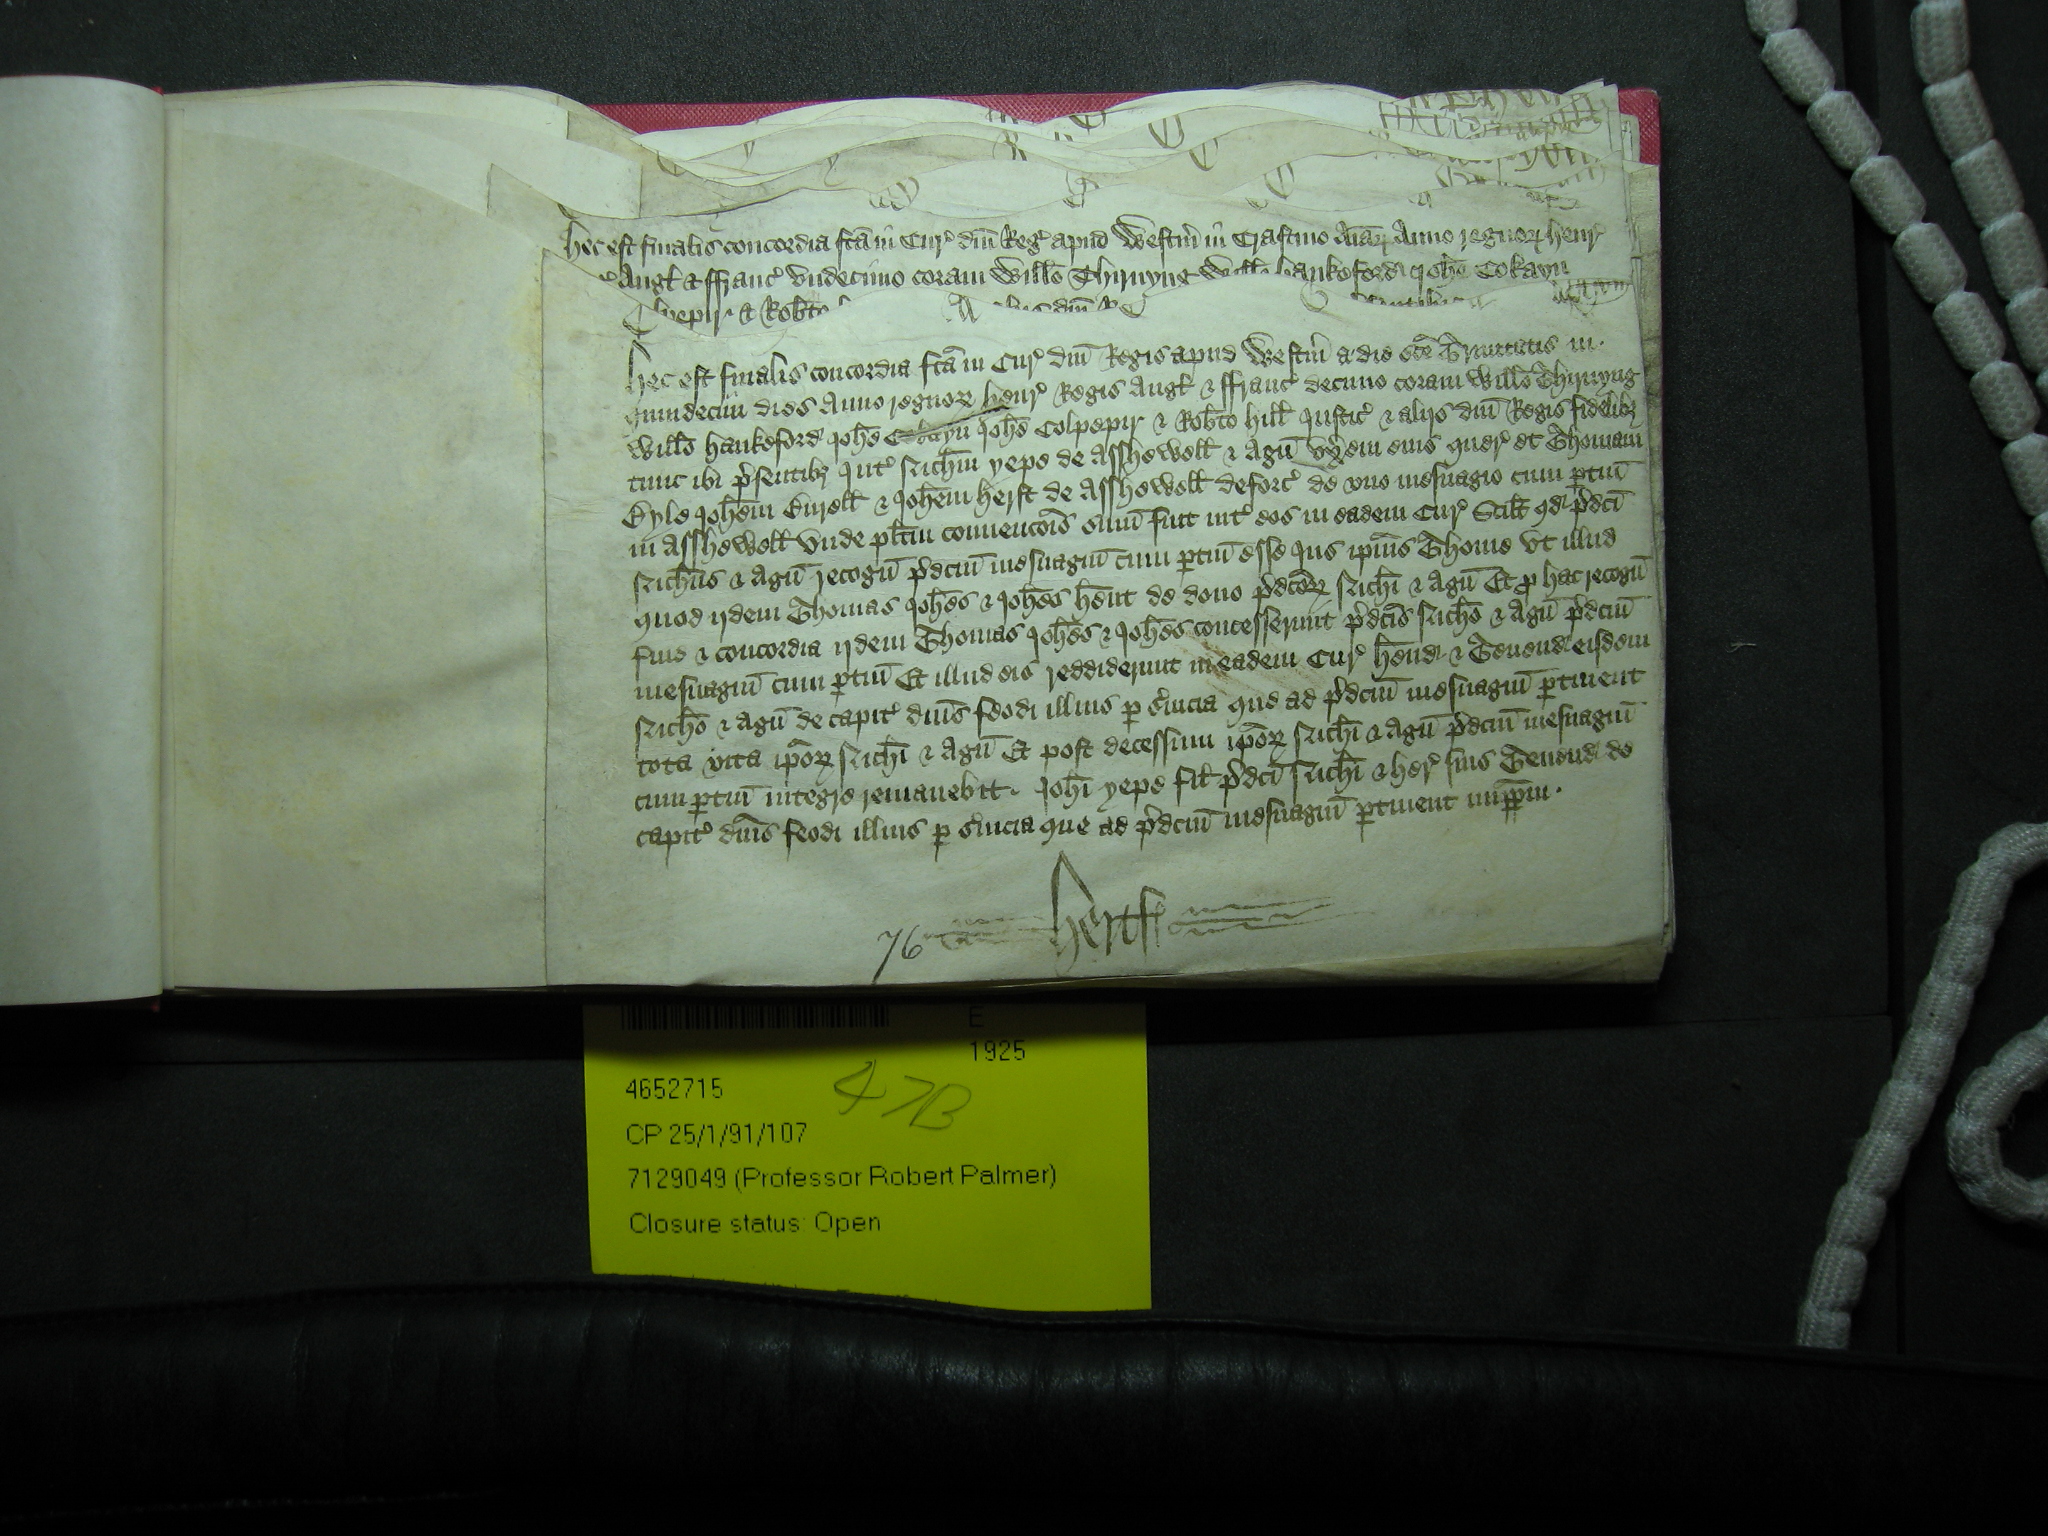 hec est finalis concordia fcā in Cur' dn̄i Reg' apud Westm̄ in Crastino Aīaꝝ Anno regnoꝝ henr'
Angł & ffranc' vndecimo coram Willo Thirnyng Willo hankeford Joħe Cokayn
Colpepir & Rob̄to
hec est finalis concordia fcā in Cur' dn̄i Regis apud Westm̄ a die sc̄e Trinitatis in
quindecim dies Anno regnoꝝ henr' Regis Angł & ffranc' decimo coram Willo Thirnyng
Willo hankeford Joħe Cokayn Joħe Colpepir & Rob̄to hill Justic' & alijs dn̄i Regis fidelibꝫ
tunc ibi p̄sentibꝫ Int' Ric̄hm yepe de Asshewell & Agn̄ vx̄em eius quer' et Thomam
Joħem & Joħem herst de Asshewell deforc' de vno mesuagio cum ptin̄
in Asshewell vnde plītm convencōis sum̄ fuit int' eos in eadem Cur' Scilt qd p̄dcī
Ric̄hus & Agn̄ recogn̄ p̄dcm̄ mesuagiū cum ptin̄ esse Jus ipīus Thome vt illud
quod ijdem Thomas Joħes & Joħes hēnt de dono p̄dcōꝝ Ric̄hi & Agn̄ Et ꝓ hac recogn̄
fine & concordia ijdem Thomas Joħes & Joħes concesserunt p̄dcīs Ric̄ho & Agn̄ p̄dcm̄
mesuagiū cum ptin̄ Et illud eis reddiderunt in eadem Cur' hēnd & Tenend eisdem
Ric̄ho & Agn̄ de capit' dn̄is feodi illius ꝑ s̄uicia que ad p̄dcm̄ mesuagiū ꝑtinent
tota vita ipōꝝ Ric̄hi & Agn̄ Et post decessum ipōꝝ Ric̄hi & Agn̄ p̄dcm̄ mesuagiū
cum ptin̄ integre remanebit Joħi yepe fił p̄dcī Ric̄hi & her' suis Tenend de
capit' dn̄is feodi illius ꝑ s̄uicia que ad p̄dcm̄ mesuagiū ꝑtinent imppm̄
76 hertf
E
1925
4652715
47B
CP 25/1/91/107
7129049 (Professor Robert Palmer)
Closure status: Open